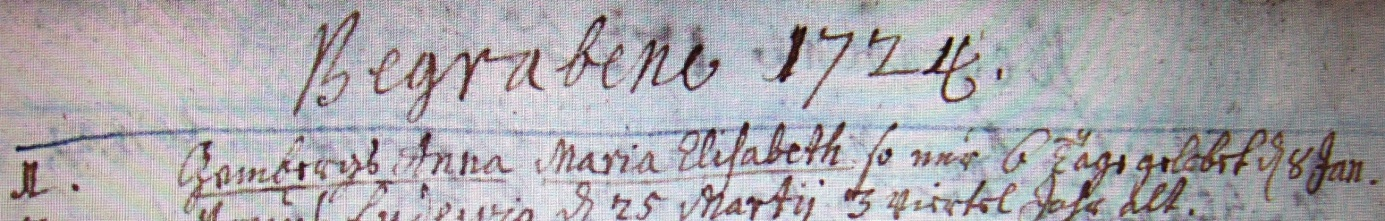 Begrabene 1724.
1. Gambergs Anna Maria Elisabeth so nur 6 Tage gelebet d 8 Jan.
Ludewig d 25 Martij 3 viertel Jahr alt.